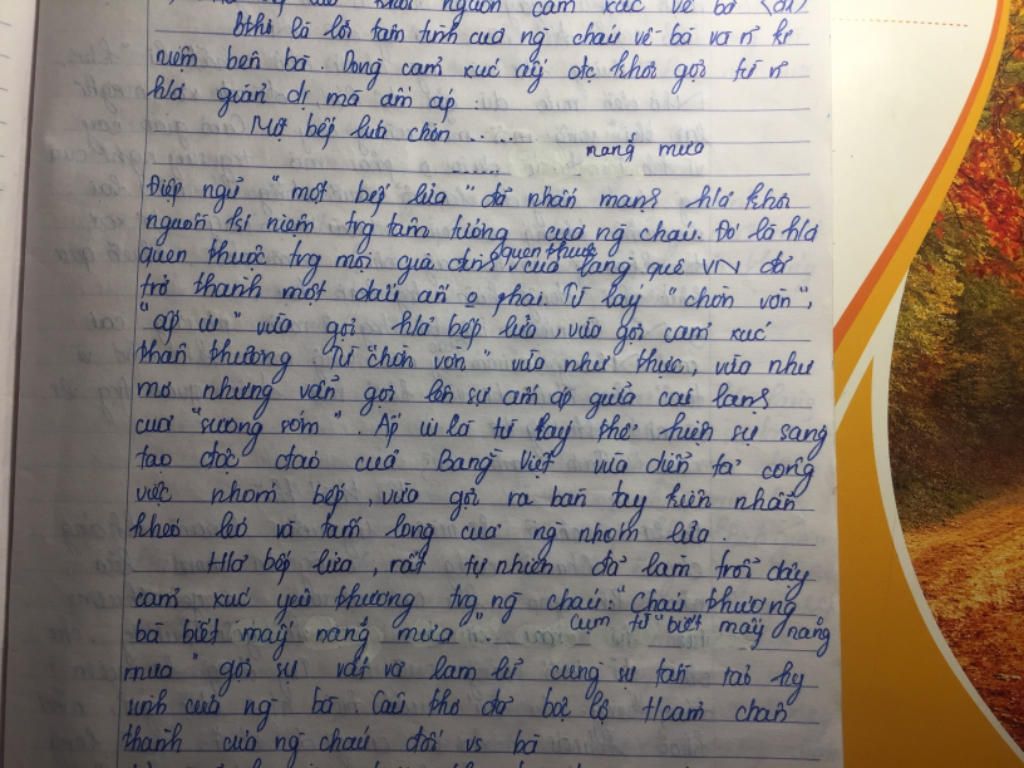 khơi nguồn cảm xúc về bà
Bthơ là lời tâm tình cuả ng cháu về bà và n~ kỉ
niệm bên bà. Dòng cảm xúc ấy đc khơi gợi từ n~
h/ả giản dị mà ấm áp :
Một bếp lửa chờn ... ....
nắng mưa
......
Điệp ngữ "một bếp lửa" đã nhấn mạnh h/ả khơi
nguồn kỉ niệm trg tâm tưởng cuả ng cháu. Đó là h/ả
quen thuộc trg mọi gia đình quen thuộc của làng quê VN đã
trở thành một dấu ấn o phai. Từ láy "chờn vờn",
"ấp iu" vừa gợi h/ả bếp lửa, vừa gợi cảm xúc
thân thương Từ "chờn vờn" vừa như thực, vừa như
mơ nhưng vẫn gợi lên sự ấm áp giữa cái lạnh
cuả "sương sớm". Ấp iu là từ láy thể hiện sự sáng
tạo độc đáo cuả Bằng Việt vừa diễn tả công
việc nhóm bếp, vừa gợi ra bàn tay kiên nhẫn
khéo léo và tấm lòng cuả ng nhóm lửa.
H/ả bếp lửa, rất tự nhiên đã làm trỗi dậy
cảm xúc yêu thương trg ng cháu: "Cháu thương
bà biết mấy nắng mưa". Cụm từ "biết mấy nắng
mưa" gợi sự vất vả lam lũ cùng sự tần tảo hy
sinh cuả ng bà Câu thơ đã bộc lộ t/cảm chân
thành cuả ng cháu đối vs bà